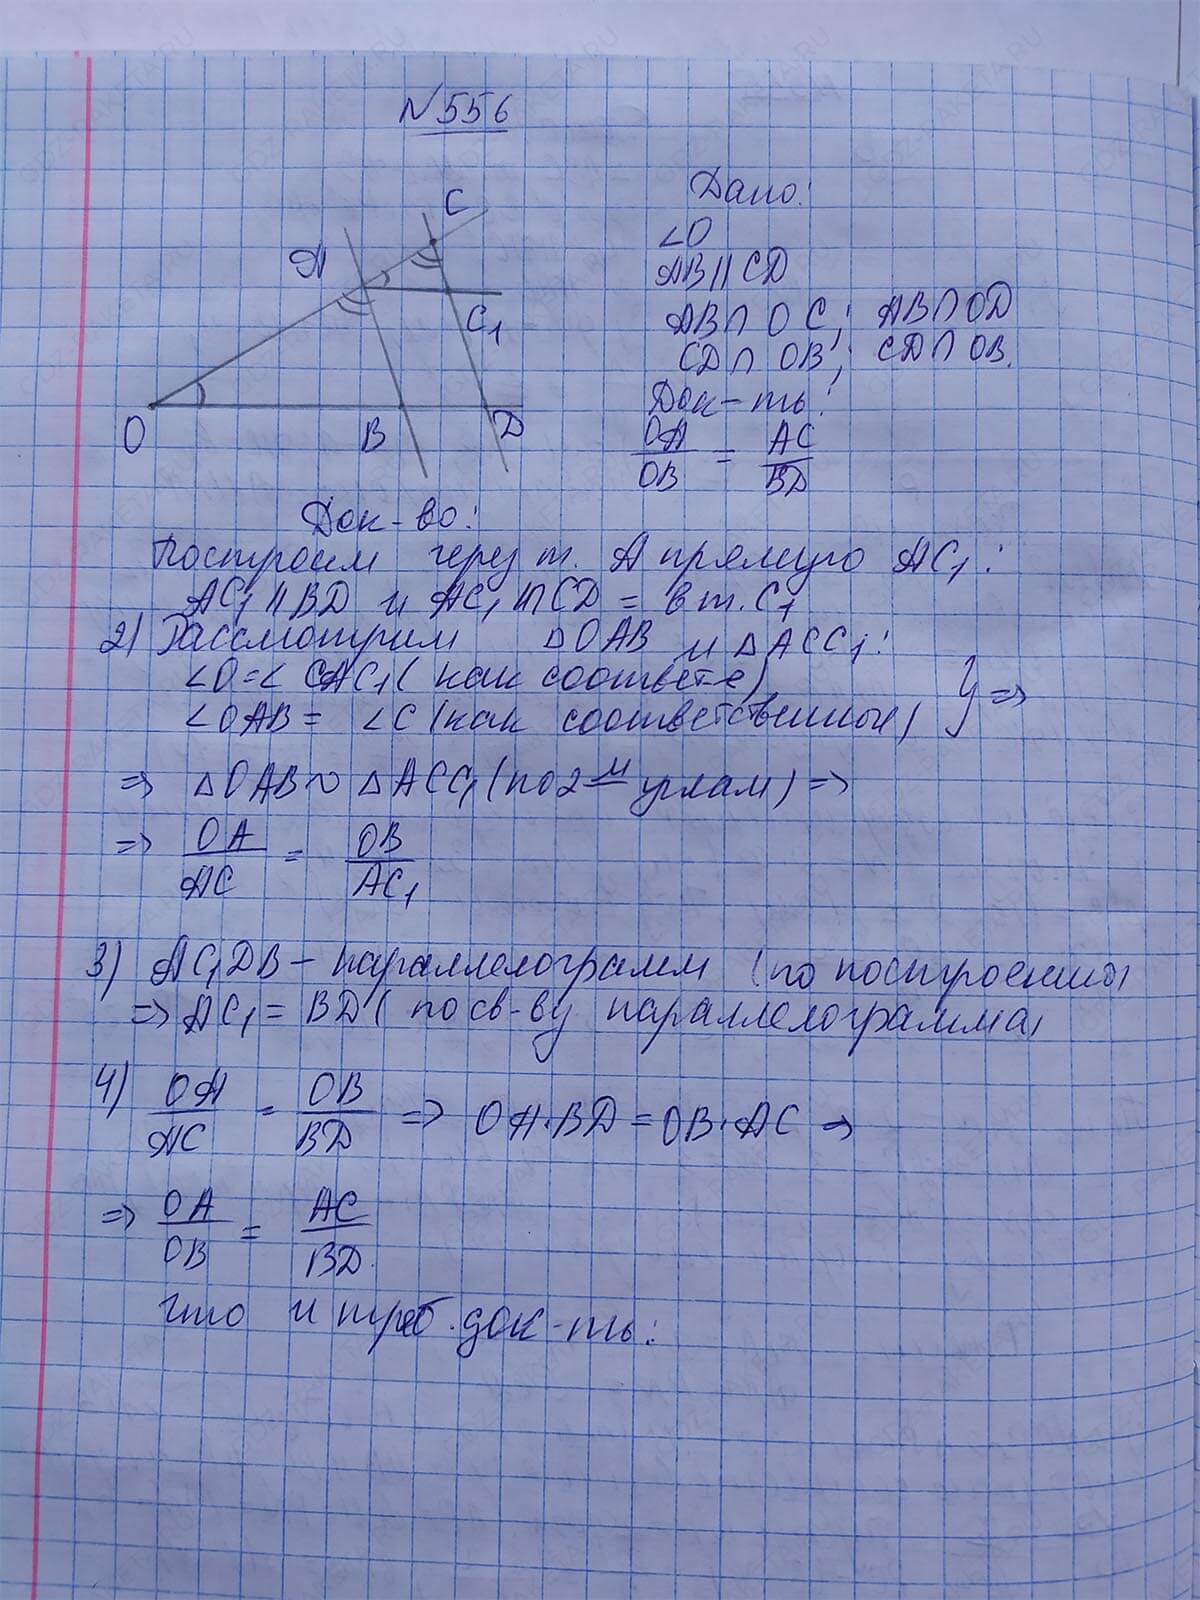 N 556
C
A
C₁
O
B
D
Дано:
∠O
AB || CD
AB ∩ OC; AB ∩ OD
CD ∩ OB; CD ∩ OB.
Док-ть:
OA/OB = AC/BD
Док-во:
Построим через т. A прямую AC₁:
AC₁ || BD и AC₁ ∩ CD = в т. C₁
2) Рассмотрим △OAB и △ACC₁:
∠O = ∠CAC₁ (как соответ-е)
∠OAB = ∠C (как соответственные) } =>
=> △OAB ~ △ACC₁ (по 2-м углам) =>
=> OA/AC = OB/AC₁
3) AC₁DB – параллелограмм (по построению)
=> AC₁ = BD (по св-ву параллелограмма)
4) OA/AC = OB/BD => OA·BD = OB·AC =>
=> OA/OB = AC/BD.
что и треб. док-ть: